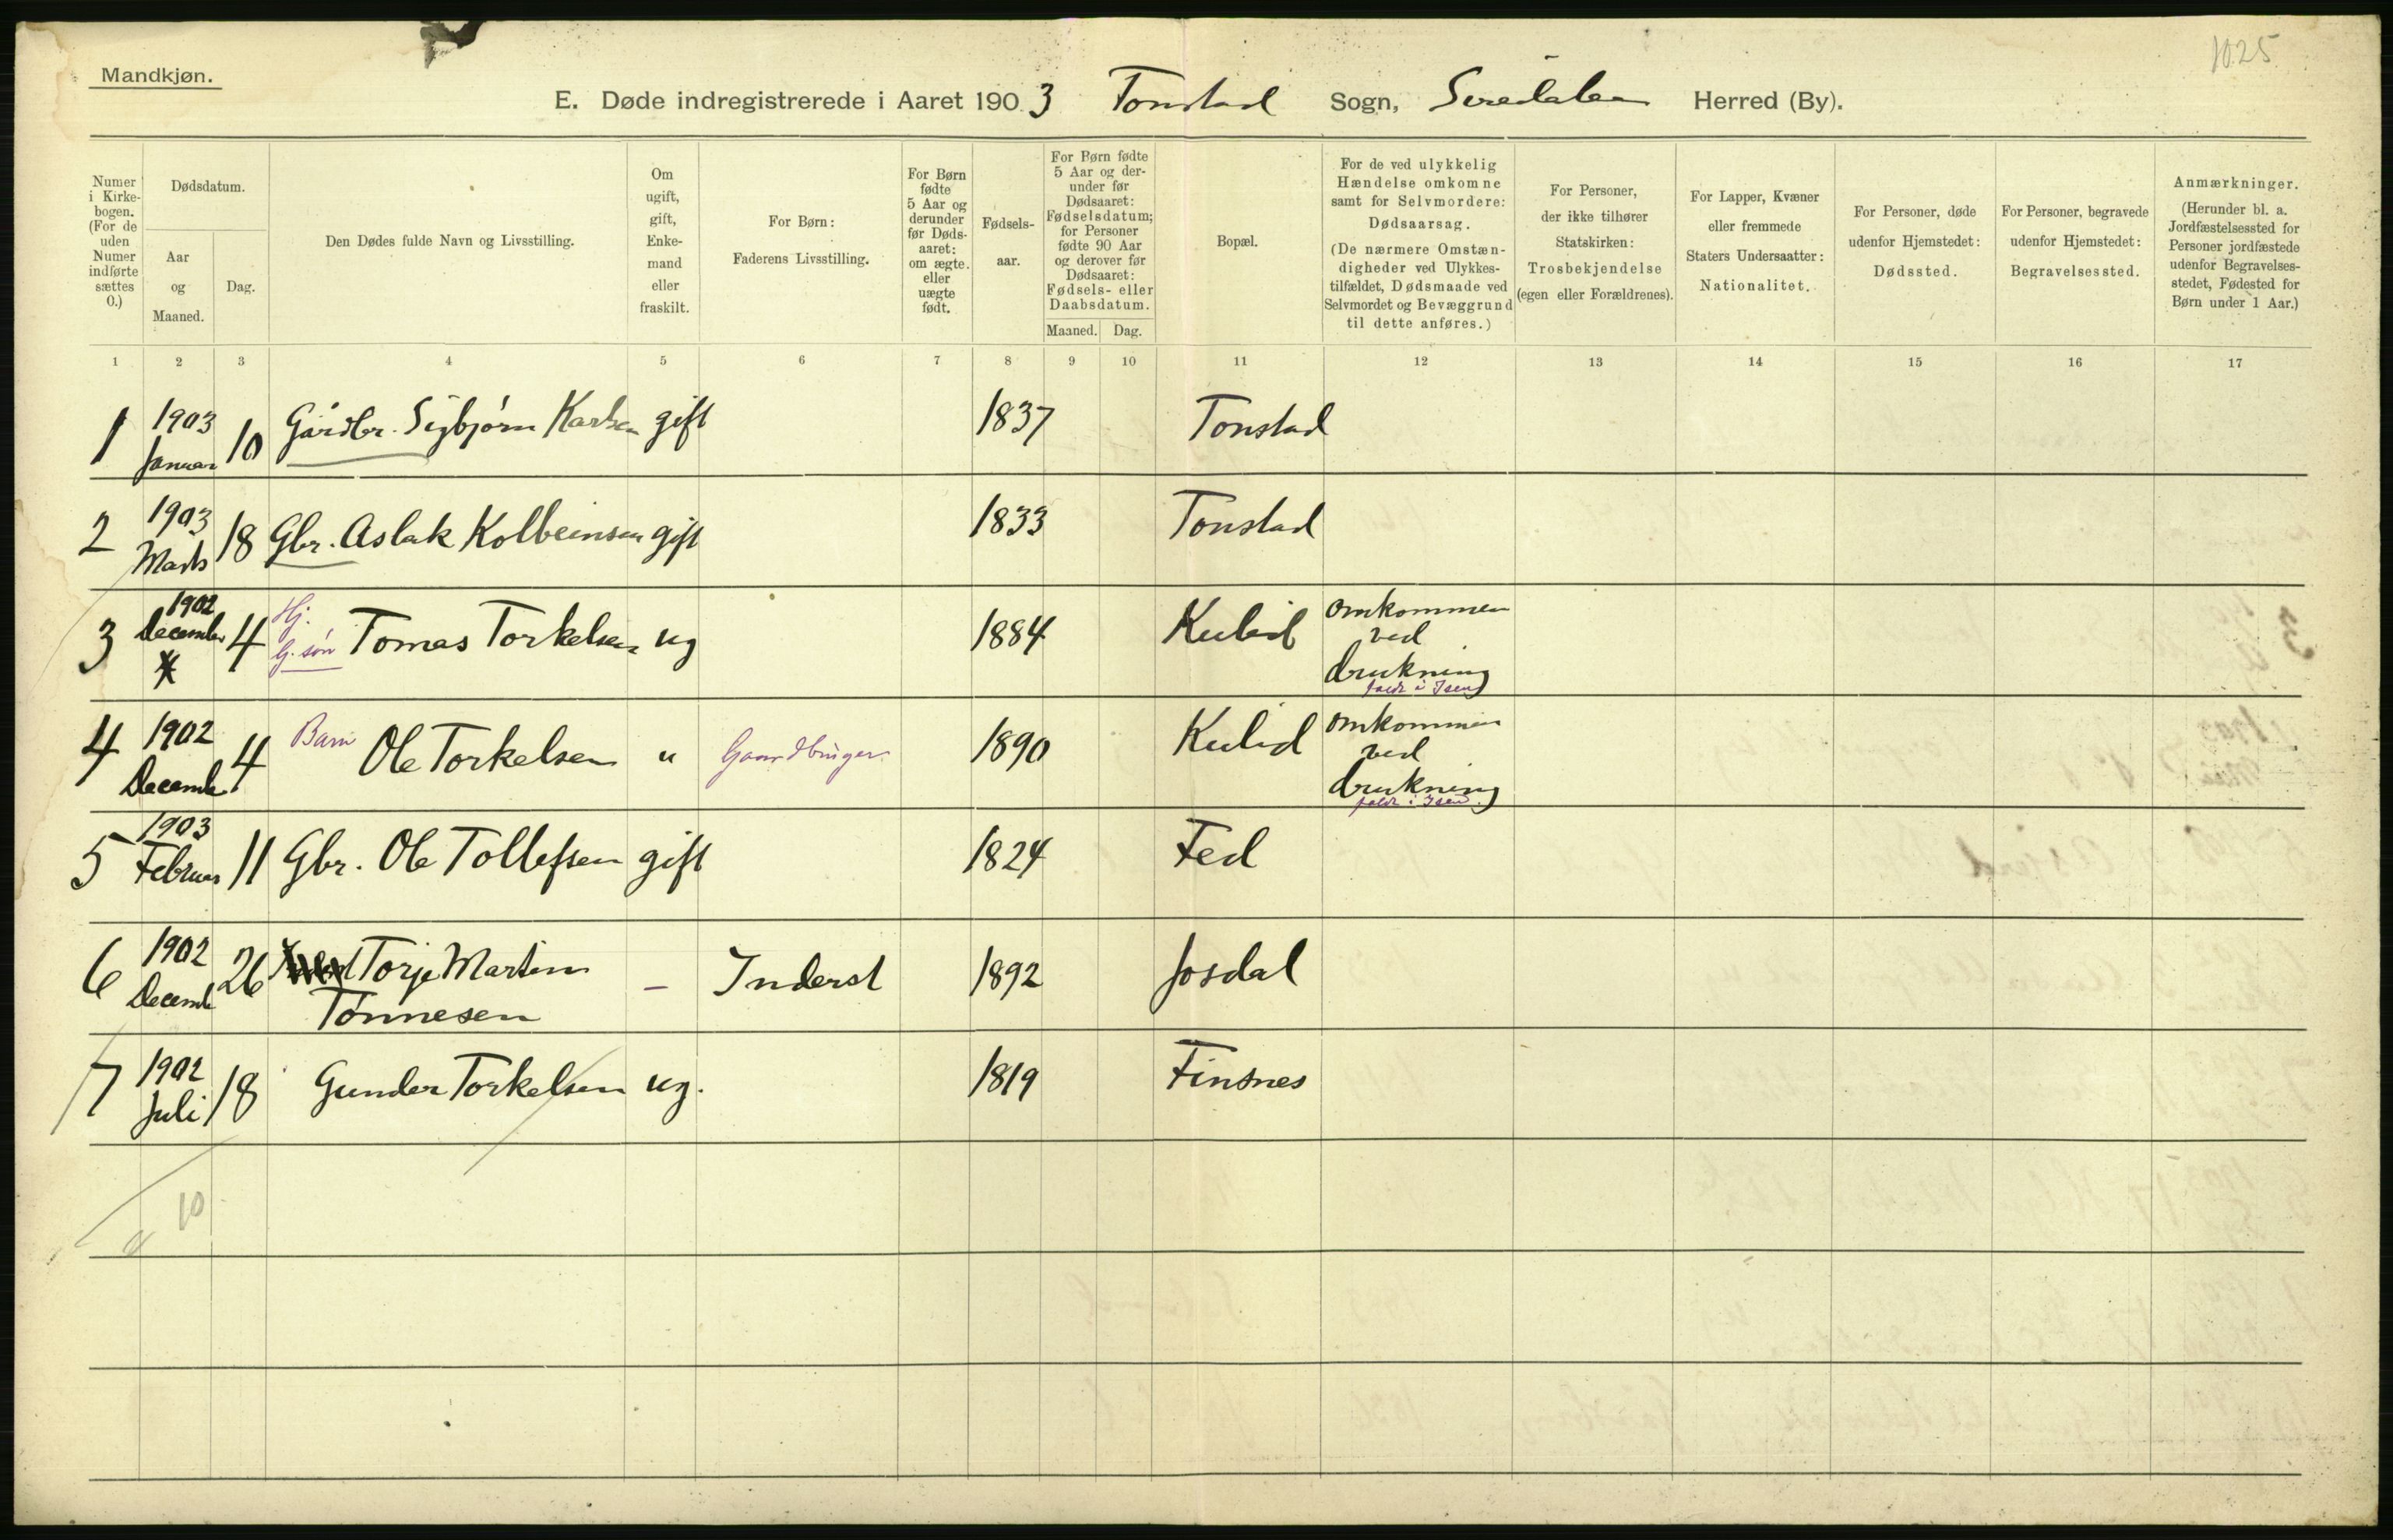 1025
Mandkjøn.
E. Døde indregistrerede i Aaret 1903 Tonstad Sogn, Siredalen Herred (By).
Numer i Kirkebogen. (For de uden Numer indførte sættes 0.)
Dødsdatum.
Aar og Maaned.
Dag.
Den Dødes fulde Navn og Livsstilling.
Om ugift, gift, Enkemand eller fraskilt.
For Børn: Faderens Livsstilling.
For Børn fødte 5 Aar og derunder før Dødsaaret: om ægte eller uægte født.
Fødselsaar.
For Børn fødte 5 Aar og derunder før Dødsaaret: Fødselsdatum; for Personer fødte 90 Aar og derover før Dødsaaret: Fødsels- eller Daabsdatum.
Maaned. Dag.
Bopæl.
For de ved ulykkelig Hændelse omkomne samt for Selvmordere: Dødsaarsag. (De nærmere Omstændigheder ved Ulykkestilfældet, Dødsmaade ved Selvmordet og Bevæggrund til dette anføres.)
For Personer, der ikke tilhører Statskirken: Trosbekjendelse (egen eller Forældrenes).
For Lapper, Kvæner eller fremmede Staters Undersaatter: Nationalitet.
For Personer, døde udenfor Hjemstedet: Dødssted.
For Personer, begravede udenfor Hjemstedet: Begravelsessted.
Anmærkninger. (Herunder bl. a. Jordfæstelsessted for Personer jordfæstede udenfor Begravelsesstedet, Fødested for Børn under 1 Aar.)
1 2 3 4 5 6 7 8 9 10 11 12 13 14 15 16 17
1 1903 Januar 10 Gårdbr. Sigbjørn Karlsen gift 1837 Tonstad
2 1903 Marts 18 Gbr. Aslak Kolbeinsen gift 1833 Tonstad
3 1902 December 4 Hj. G. søn Tomas Torkelsen ug 1884 Kulid omkommen ved drukning faldt i Isen
4 1902 Decemb 4 Barn Ole Torkelsen " Gaardbruger 1890 Kulid omkommen ved drukning faldt i Isen.
5 1903 Februar 11 Gbr. Ole Tollefsen gift 1824 Fed
6 1902 Decemb 26 Torje Martin Tønnesen – Inderst 1892 Josdal
7 1902 Juli 18 Gunder Torkelsen ug. 1819 Finsnes
10